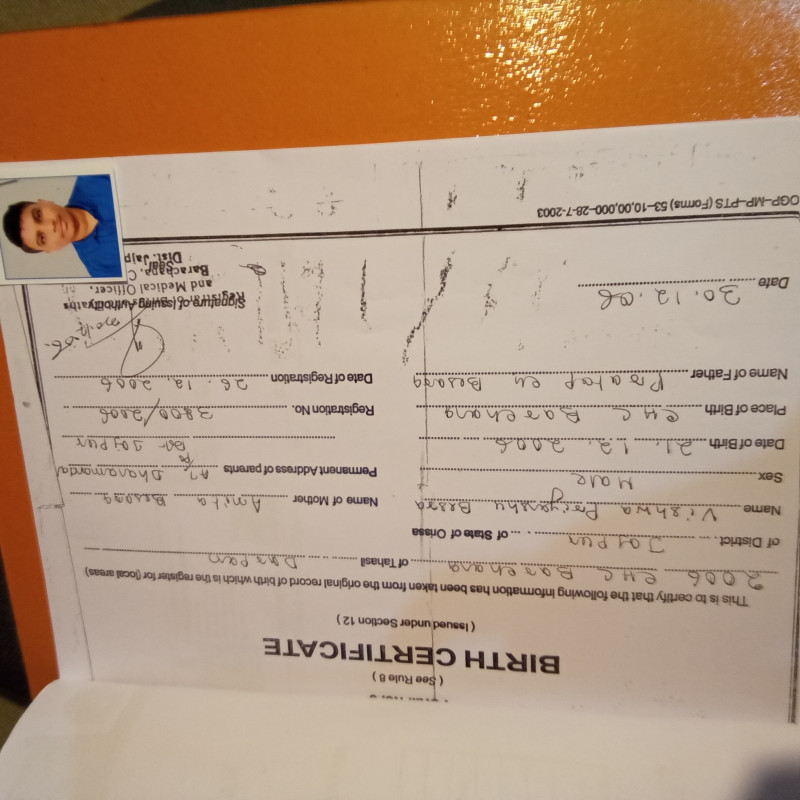 ( See Rule 8 )
BIRTH CERTIFICATE
( Issued under Section 12 )
This is to certify that the following information has been taken from the original record of birth which is the register for (local areas)
2006 CHC Barchana of Tahasil Darpan
of District Jajpur of State of Orissa
Name Vishwa Priyanshu Besra Name of Mother Amita Besra
Sex Male Permanent Address of parents At Dharamandal
Date of Birth 21.12.2006 Jajpur
Place of Birth CHC Barchana Registration No. 3800/2006
Name of Father Pratap Besra Date of Registration 26.12.2006
Date 30.12.06
Signature of Issuing Authority
Registrar
and Medical Officer,
Seal
Barachana, C
Dist. Jajp
OGP–MP–PTS (Forms) 53–10,00,000–28-7-2003